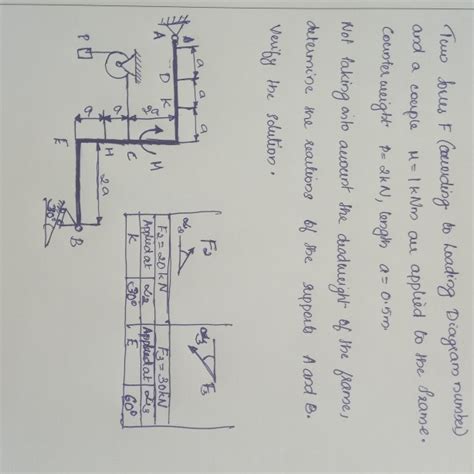 Two forces F (according to Loading Diagram number)
and a couple M = 1 kNm are applied to the frame.
Counterweight P = 2kN, length a = 0.5m.
Not taking into amount the deadweight of the frame,
determine the reactions of the supports A and B.
Verify the solution.
A
D
K
a
a
a
P
a
a
2a
M
E
H
C
2a
B
30°
F2
α2
F3
α3
F2 = 20kN
F3 = 30kN
Applied at
α2
Applied at
α3
K
30°
E
60°